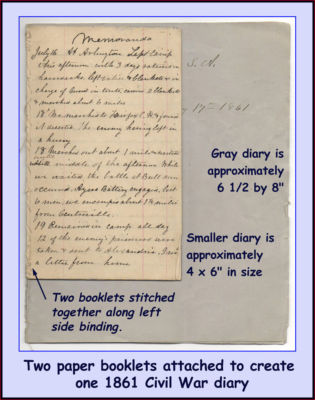 Memoranda
July 16 At Arlington Left Camp
this afternoon with 3 days rations in
haversacks left & blankets in
charge of Guard in tents
& marched about 6 miles
18 We marched to Fairfax C.H. & found
it deserted The enemy having left in
a hurry
18 Marched out about 1 mile &
middle of the afternoon While
we waited the battle of Bull Run
occurred. Ayres Battery engaged, lost
6 men, we encamped about 1¼ miles
from Centreville.
19 Remained in camp all day
12 of the enemy's prisoners were
taken & sent to Alexandria. I rec'd
a letter from home
S. A.
17th 1861
Gray diary is
approximately
6 1/2 by 8"
Smaller diary is
approximately
4 x 6" in size
Two booklets stitched
together along left
side binding.
Two paper booklets attached to create
one 1861 Civil War diary